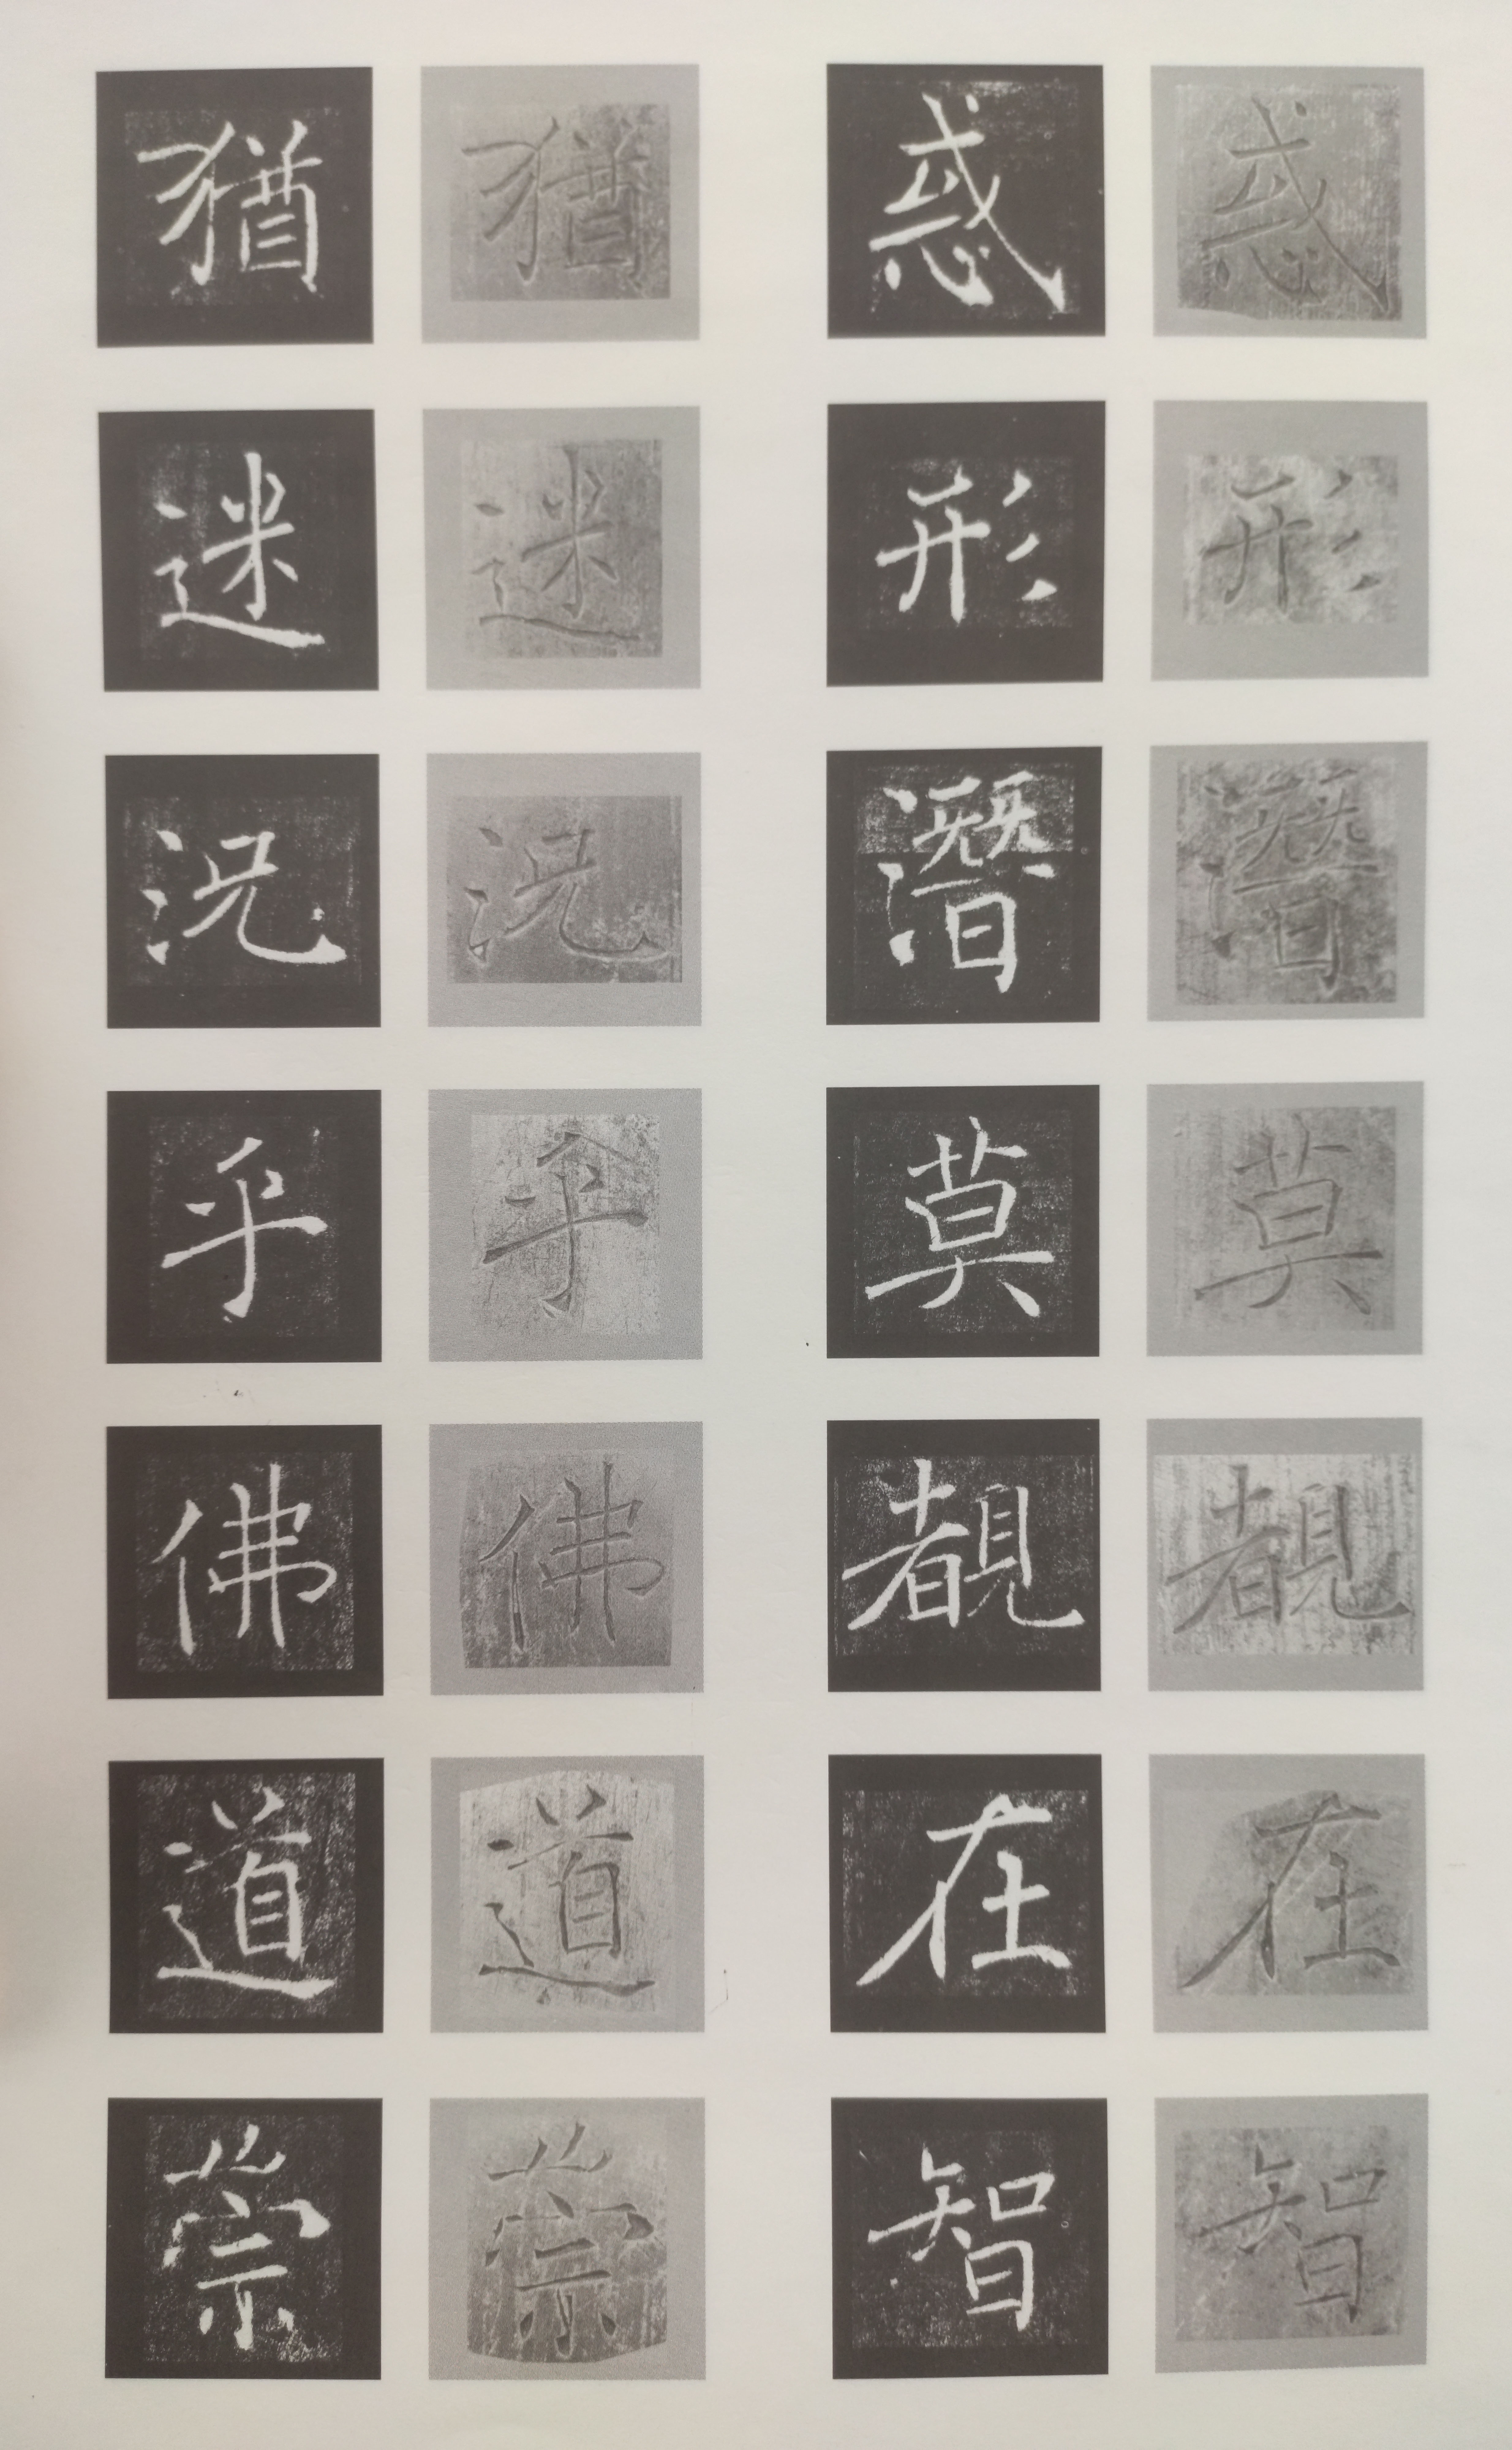 惑形潛莫覩在智
惑形潛莫覩在智
猶迷況乎佛道崇
猶迷況乎佛道崇